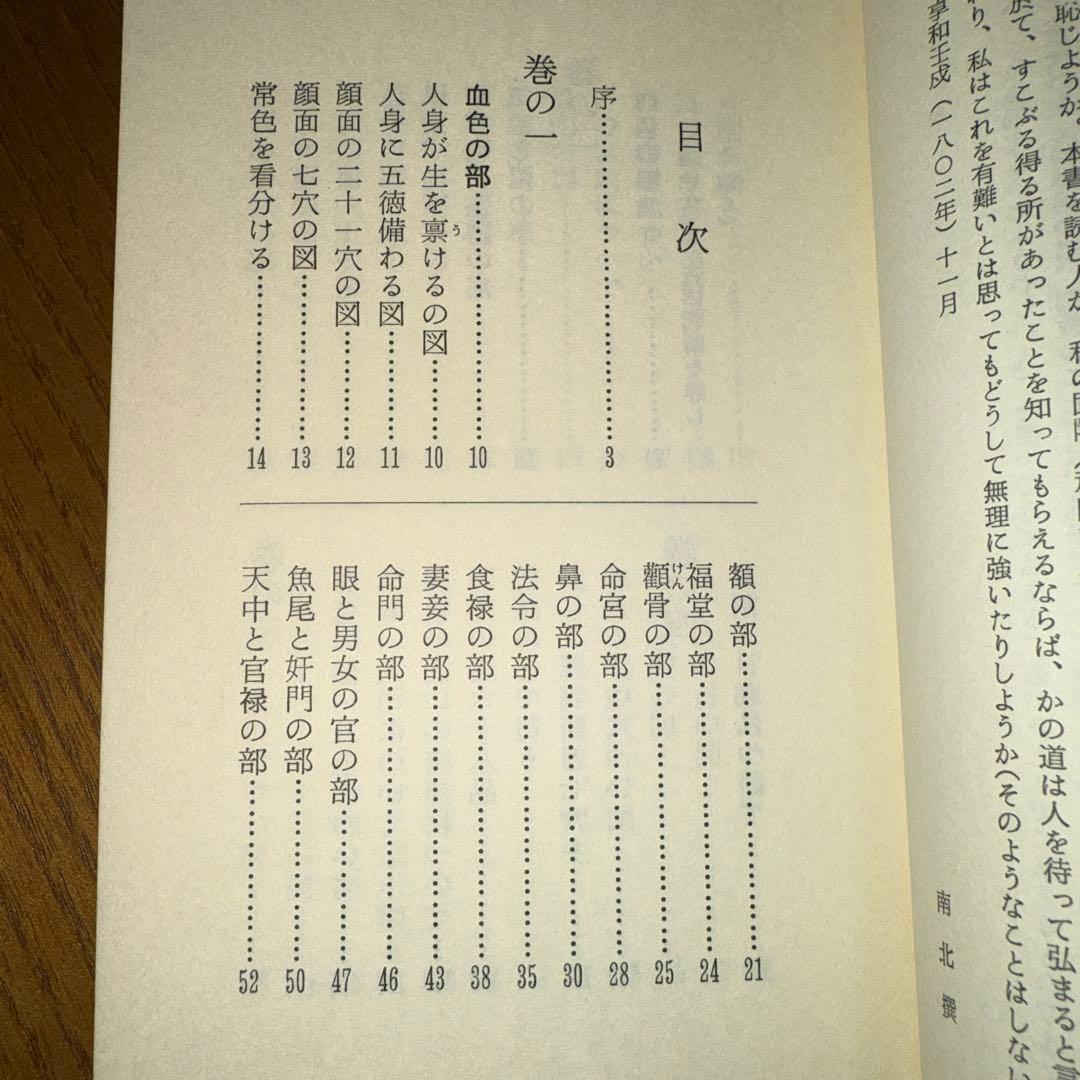 恥じようか。本書を読む人が、私の
於て、すこぶる得る所があったことを知ってもらえるならば、かの道は人を待って弘まると言
り、私はこれを有難いとは思ってもどうして無理に強いたりしようか(そのようなことはしない
享和壬戌(一八〇二年)十一月
南北撰
目次
序……………3
巻の一
血色の部……………10
人身が生を禀けるの図……………10
う
人身に五徳備わる図……………11
顔面の二十一穴の図……………12
顔面の七穴の図……………13
常色を看分ける……………14
額の部……………21
福堂の部……………24
顴骨の部……………25
けん
命宮の部……………28
鼻の部……………30
法令の部……………35
食禄の部……………38
妻妾の部……………43
命門の部……………46
眼と男女の官の部……………47
魚尾と奸門の部……………50
天中と官禄の部……………52